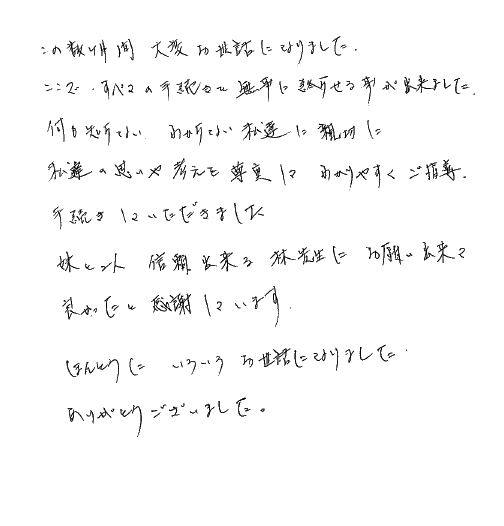 この数ヶ月間 大変お世話になりました。
ここで、すべての手続きを無事に終らせる事が出来ました。
何も知らない わからない私達に親切に
私達の思いや考えを尊重して わかりやすくご指導、
手続きしていただきました
妹と二人 信頼出来る林先生にお願い出来て
良かったと感謝しています。
ほんとうに いろいろお世話になりました。
ありがとうございました。